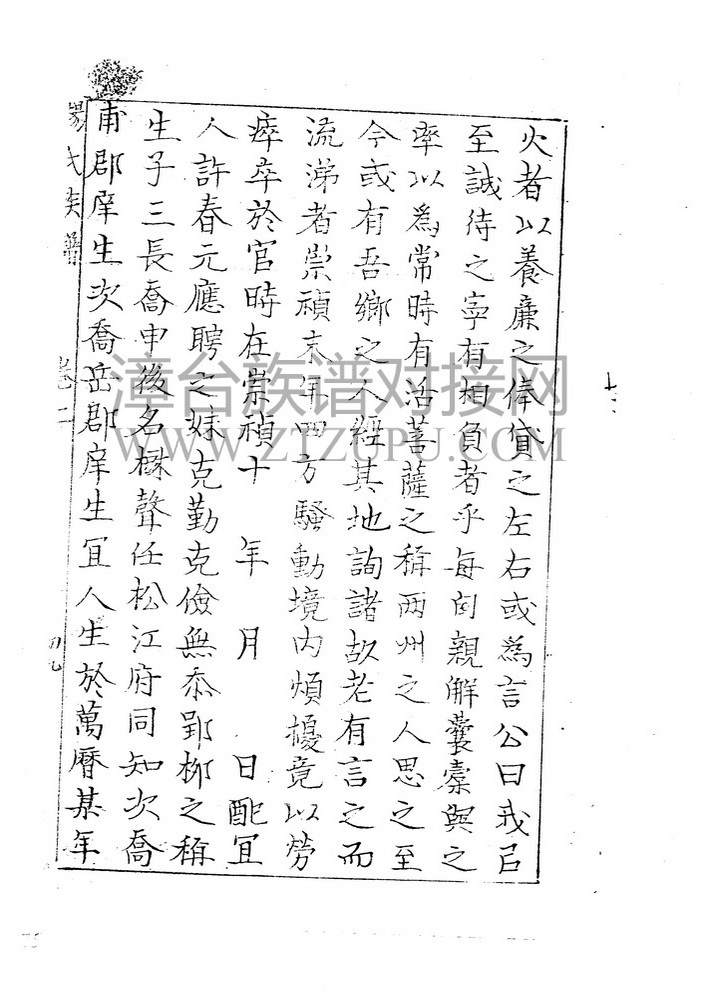 火者以養廉之俸貸之左右或為言公曰我已
至誠待之寧有相負者乎每向親解囊橐與之
率以為常時有活菩薩之稱兩州之人思之至
今或有吾鄉之人經其地詢諸故老有言之而
流涕者崇禎末年四方騷動境內煩擾竟以勞
瘁卒於官時在崇禎十 年 月 日配宜
人許春元應聘之妹克勤克儉無忝郢柳之稱
生子三長喬申後名楙聲任松江府同知次喬
甫郡庠生次喬岳郡庠生宜人生於萬曆某年
楊氏族譜 卷二
漳台族谱对接网
WWW.ZTZUPU.COM